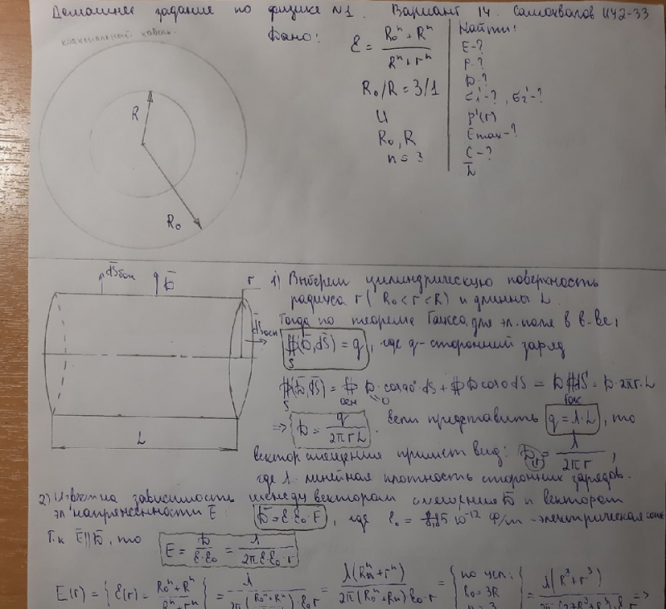 Домашнее задание по физике №1. Вариант 14. Самохвалов ИУ2-33
коаксиальный кабель.
R
R₀
Дано:
ε = (R₀ⁿ + Rⁿ) / (Rⁿ + rⁿ)
R₀/R = 3/1
U
R₀, R
n = 3
Найти:
E-?
P-?
D-?
σ₁'-?, σ₂'-?
ρ'(r)
Emax-?
C/L-?
dSбок
D
r
dSосн
L
1) Выберем цилиндрическую поверхность
радиуса r (R₀<r<R) и длинны L.
Тогда по теореме Гаусса для эл. поля в в-ве:
∯(D,dS) = q, где q-сторонний заряд
S
∯(D,dS) = ∯ D·cos90° dS + ∯ D cos0 dS = D∯dS = D·2πr·L
⇒ D = q/(2πrL). Если представить q = λ·L, то
вектор смещения примет вид: D(r) = λ/(2πr),
где λ - линейная плотность сторонних зарядов.
2) Известна зависимость между вектором смещения D и вектором
эл. напряженности E: D = ε·ε₀·E, где ε₀ = 8,85·10⁻¹² Ф/m - электрическая
Т.к E||D, то E = D/(ε·ε₀) = λ/(2πε·ε₀·r)
E(r) = {ε(r) = (R₀ⁿ + Rⁿ)/(Rⁿ + rⁿ)} =